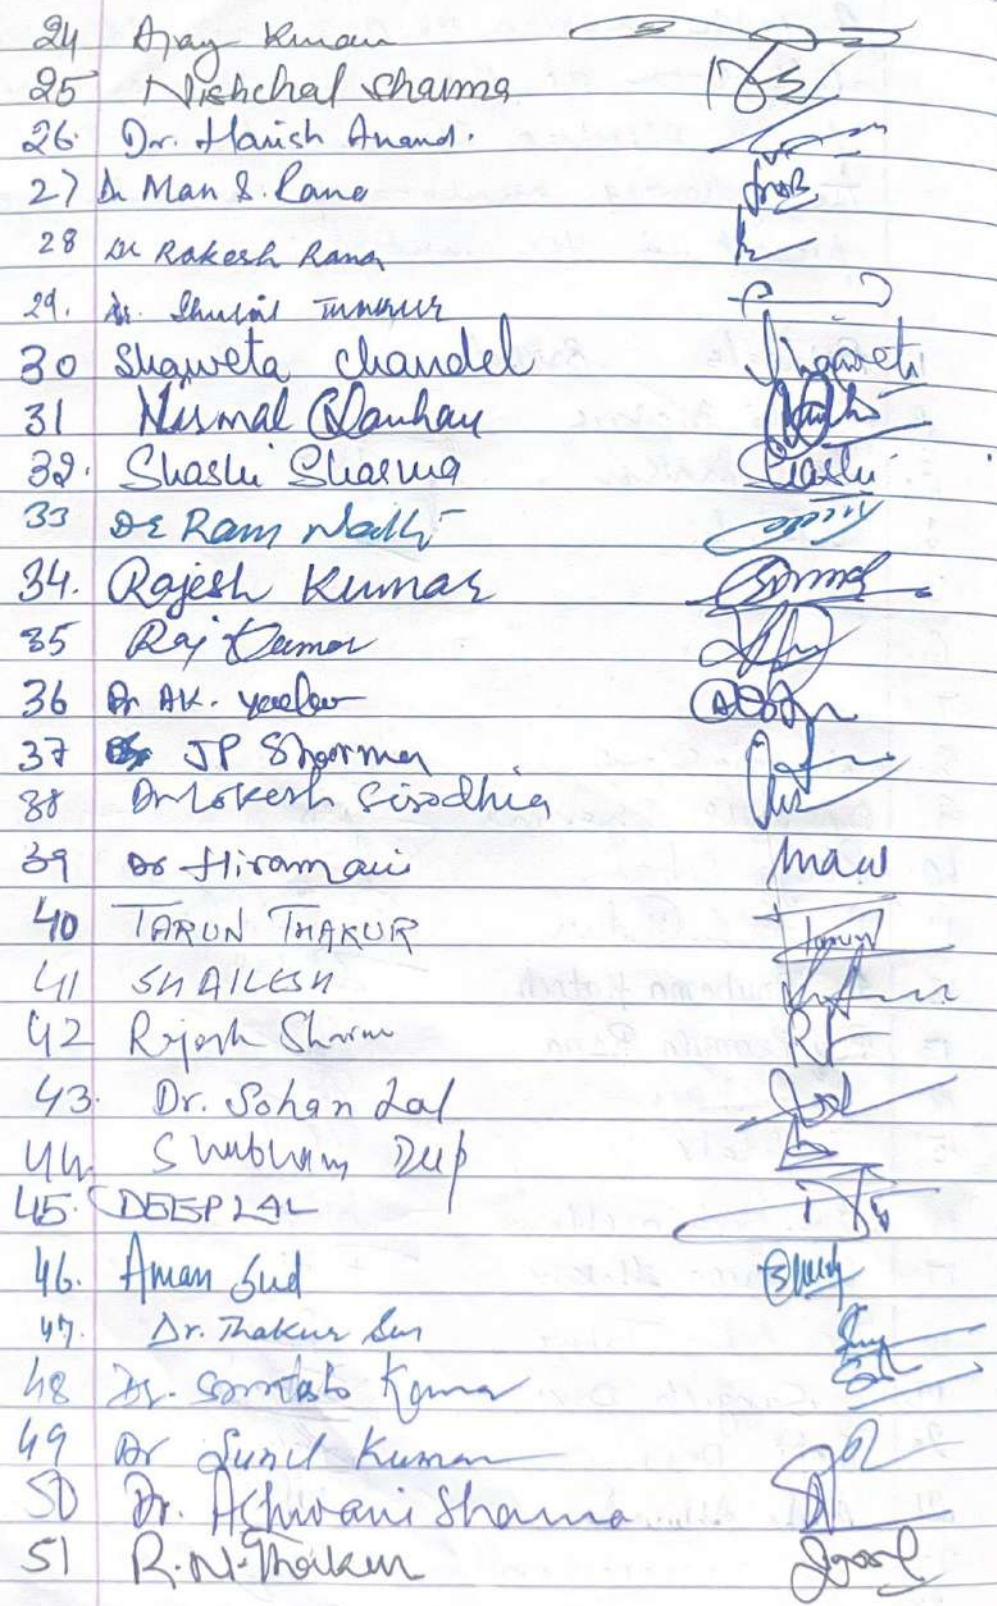 24 Ajay Kumar
25 Nishchal Sharma
26. Dr. Harish Anand.
27 Dr Man S. Rana
28 Dr Rakesh Rana
29. Dr.
30 Shaweta Chandel Shaweta
31 Nirmal Chauhan
32. Shashi Sharma Shashi
33 Dr Ram Nath
34. Rajesh Kumar
35 Raj Kumar
36 Dr AK. Yadav
37 JP Sharma
38 Dr Lokesh Sisodhia
39 Dr Hiramani
40 TARUN THAKUR Tarun
41 SHAILESH
42 Rajesh Sharma
43. Dr. Sohan Lal
44. Shubham
45. DEEP LAL
46. Aman Sud
47. Dr. Thakur Sen
48 Dr. Kumar
49 Dr Sunil Kumar
50 Dr. Achwani Sharma
51 R.N. Thakur